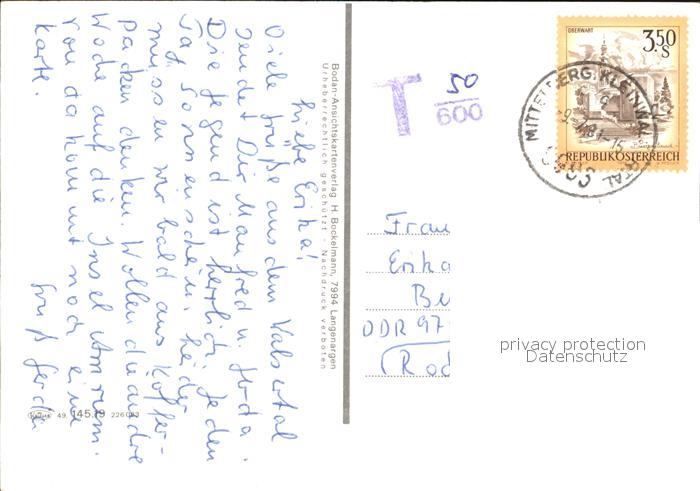 Liebe Erika!
Viele Grüße aus dem Walsertal
sendet Dir Manfred u. Gerda.
Die Gegend ist herrlich, jeden
Tag Sonnenschein. Leider
müssen wir bald aus Koffer-
packen denken. Wollen die andre
Woche auf die Insel Amrum.
Von da kommt noch eine
Karte.
Gruß Gerda
Bodan-Ansichtskartenverlag H. Bockelmann, 7994 Langenargen
Urheberrechtlich geschützt - Nachdruck verboten
49. 145.19 226
T 50
600
OBERWART
3.50 S
REPUBLIK ÖSTERREICH
MITTELBERG, KLEINWALSERTAL
Frau
Erika
Be
DDR 97
(Rod
privacy protection
Datenschutz